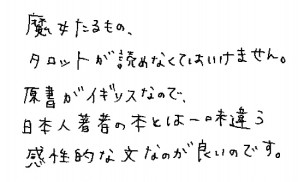 魔女たるもの、
タロットが読めなくてはいけません。
原書がイギリスなので、
日本人著者の本とは一味違う
感性的な文なのが良いのです。